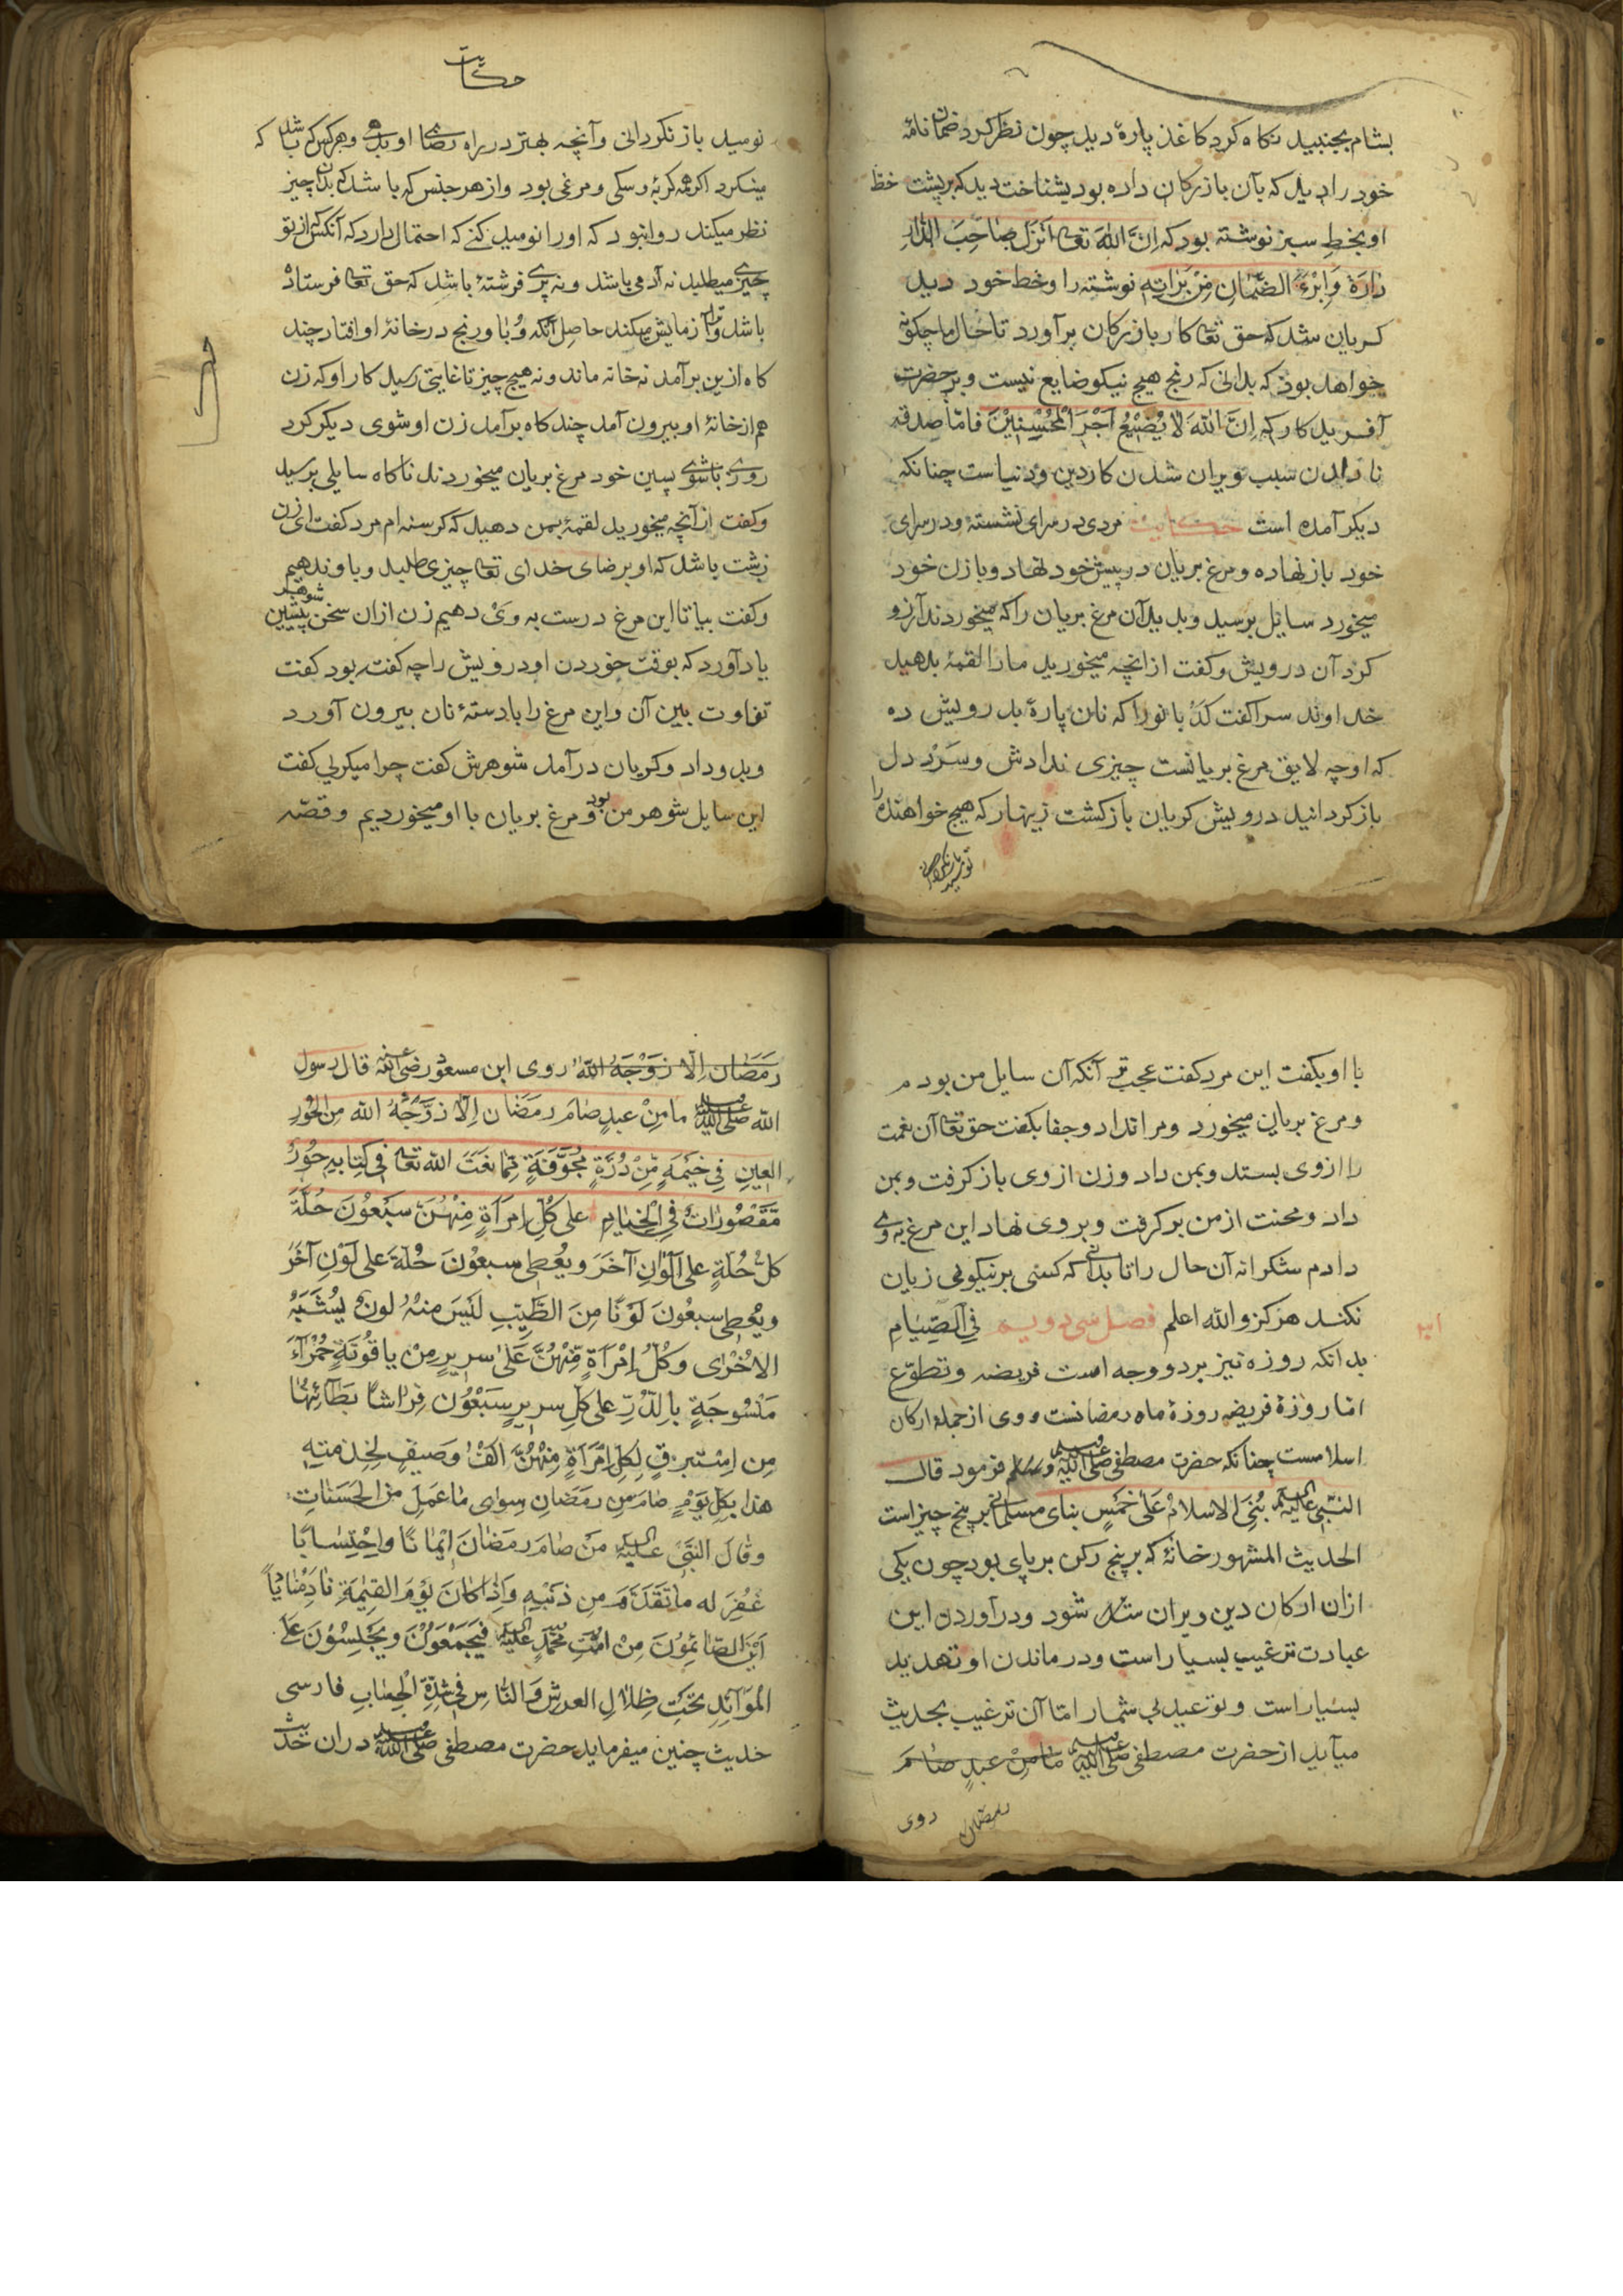 بشام بجنبید نکاه کرد کاغذ پارهٔ دید چون نظر کرد ضمان نامهٔ
خود را دید که بآن بازرکان داده بود بشناخت دید که بر پشت خط
او بخط سبز نوشته بود که اِنَّ اللهَ تعا اَنْزَلَ صَاحِبَ الدَّارِ
دَارَهُ وَاَبْرَءَ الضَّمَانِ مِنْ بَرَاتِهِ نوشته را و خط خود دید
کریان شد که حق تعا کار بازرکان برآورد تا حال ما چکونه
خواهد بود که بدانی که رنج هیچ نیکو ضایع نیست و بر حضرت
آفریدکار که اِنَّ اللهَ لَا یُضِیْعُ اَجْرَ الْمُحْسِنِیْنَ فامّا صدقه
نا دادن سبب ویران شدن کار دین و دنیاست چنانکه
دیکر آمده است حکایت مردی در سرای نشسته و در سرای
خود باز نهاده و مرغ بریان در پیش خود نهاد و با زن خود
میخورد سایل برسید و بدید آن مرغ بریان را که میخوردند آرزو
کرد آن درویش و کفت از انچه میخورید ما را لقمهٔ بدهید
خداوند سرا کفت کدبانو را که نان پارهٔ بدرویش ده
که او چه لایق مرغ بریانست چیزی ندادش و سرد دل
باز کردانید درویش کریان باز کشت زینهار که هیچ خواهنده را
نومید باز نکردانی
حکایت
نومید باز نکردانی و آنچه بهتر در راه رضا او بدهی و هر کس که باشد که
مینکرد اکر همه کربهٔ و سکی و مرغی بود و از هر جنس که باشد که بدان چیز
نظر میکند روا نبود که او را نومید کنے که احتمال دارد که آنکس از تو
چیزے میطلبد نه آدمی باشد و نه پرے فرشتهٔ باشد که حق تعا فرستاده
باشد و ترا آزمایش میکند حاصل آنکه وبا و رنج در خانهٔ او افتاد چند
کاه ازین برآمد نه خانه ماند و نه هیچ چیز تا غایتی رسید کار او که زن
هم از خانهٔ او بیرون آمد چند کاه برآمد زن او شوی دیکر کرد
روزے با شوے پسین خود مرغ بریان میخوردند ناکاه سایلی برسید
و کفت از آنچه میخورید لقمهٔ بمن دهید که کرسنه ام مرد کفت ای زن
زشت باشد که او برضای خدای تعا چیزی طلبد و باو ندهیم
و کفت بیا تا این مرغ درست به وی دهیم زن ازان سخن شوهر پیشین
یاد آورد که بوقت خوردن او درویش را چه کفته بود کفت
تفاوت بین آن و این مرغ را با دستهٔ نان بیرون آورد
و بدو داد و کریان درآمد شوهرش کفت چرا میکریی کفت
این سایل شوهر من بود و مرغ بریان با او میخوردیم و قصّه
با او بکفت این مرد کفت عجب تر آنکه آن سایل من بودم
و مرغ بریان میخورد و مرا نداد و جفا بکفت حق تعا آن نعمت
را ازوی بستد و بمن داد و زن ازوی باز کرفت و بمن
داد و محنت از من برکرفت و بر وی نهاد این مرغ به وے
دادم شکرانه آن حال را تا بدانے که کسی بر نیکوئی زیان
نکند هرکز والله اعلم فصل سی و دویم فِی الصِّیَامِ
بدانکه روزه نیز بر دو وجه است فریضه و تطوّع
امّا روزهٔ فریضه روزهٔ ماه رمضانست و وی از جملهٔ ارکان
اسلامست چنانکه حضرت مصطفی صلی الله علیه وسلم فرمود قال
النّبی علیه السلم بُنِیَ الاسلامُ عَلیٰ خَمْسٍ بنای مسلمانی بر پنج چیز است
الحدیث المشهور خانهٔ که بر پنج رکن بر پای بود چون یکی
ازان ارکان دین ویران شد شود و در آوردن این
عبادت ترغیب بسیار است و در ماندن او تهدید
بسیار است و توعید بی شمار امّا آن ترغیب بحدیث
میآید از حضرت مصطفی صلی الله علیه وسلم مَامِنْ عبدٍ صَامَ
رمضان روی
رَمَضَان اِلّا زَوَّجَهُ اللهُ روی ابن مسعود رضی الله عنه قال رسول
الله صلی الله علیه وسلم مَا مِنْ عبدٍ صَامَ رمَضَان اِلّا زوَّجَهُ الله مِنَ الحُوْرِ
العِیْنِ فِی خَیْمَةٍ مِّنْ دُرَّةٍ مُّجَوَّفَةٍ مِمَّا نَعَتَ الله تعا فی کِتابِهِ حُوْرٌ
مَّقْصُورَاتٌ فِی الْخِیَامِ علی کُلِّ امرَاَةٍ مِنْهُنَّ سَبْعُوْنَ حُلَّةً
کلّ حُلّةٍ علی اَلْوَانِ آخَرَ و یُعْطٰی سبعُوْنَ حُلّةً علی لَوْنٍ آخَرَ
ویُعْطٰی سبعُونَ لَوْنًا مِنَ الطِّیْبِ لَیْسَ مِنْهُ لونٌ یُشْبِهُ
الاُخْرٰی وکُلُّ اِمْرَاَةٍ مِّنْهُنَّ عَلیٰ سریرٍ مِنْ یاقُوْتَةٍ حُمْرَآءَ
مَنْسُوجَةٍ بِالدُّرِّ علی کلِّ سریرٍ سَبْعُوْن فِرَاشًا بَطَآئِنُهَا
مِن اِسْتَبْرقٍ لِکلِّ امْرَاَةٍ مِنْهُنَّ اَلْفُ وَصِیفٍ لِخِدْمتِهِ
هذا بِکلِّ یَوْمٍ صَامَ مِن رَمَضَانِ سِوَی مَا عَمِلَ مِنَ الحَسَنَاتِ
وقَالَ النَّبِیُّ علیه السلم مَنْ صَامَ رمَضَانَ اِیْمَانًا وَاحْتِسَابًا
غُفِرَ له مَا تَقَدَّمَ مِن ذَنْبِهِ وَاِذَا کَانَ یَوْمَ القِیٰمَةِ نَادٰی مُنَادِیًا
اَیْنَ الصَّائِمُوْنَ مِنْ اُمَّتِ محمّدٍ علیه السلم فَیَجْمَعُوْنَ و یَجْلِسُوْنَ عَلَی
المْوَآئِدِ تَحْتَ ظِلَالِ العرشِ وَالنَّاسِ فِی شِدَّةِ الْحِسَابِ فارسی
حدیث چنین میفرماید حضرت مصطفی صلی الله علیه وسلم دران حدیث